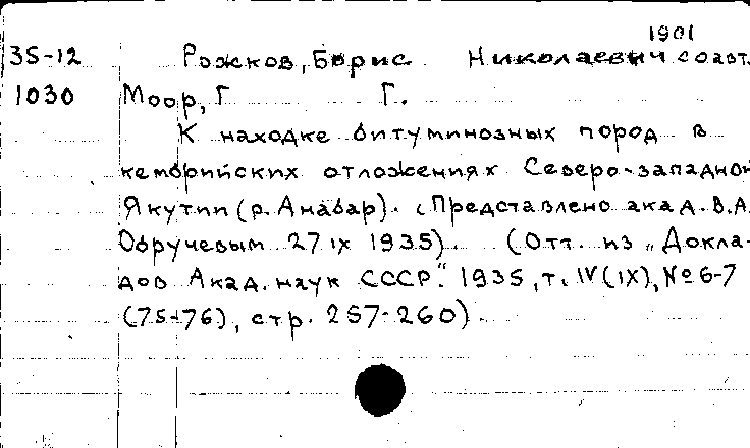 1901
35-12 Рожков, Борис Николаевич соавт.
1030 Моор, Г. Г.
К находке битуминозных пород в
кембрийских отложениях Северо-западной
Якутии (р. Анабар). (Представлено акад. В.А.
Обручевым 27 IX 1935). (Отт. из „Докла-
дов Акад. наук СССР." 1935, т. IV (IX), № 6-7
(75-76), стр. 257-260).